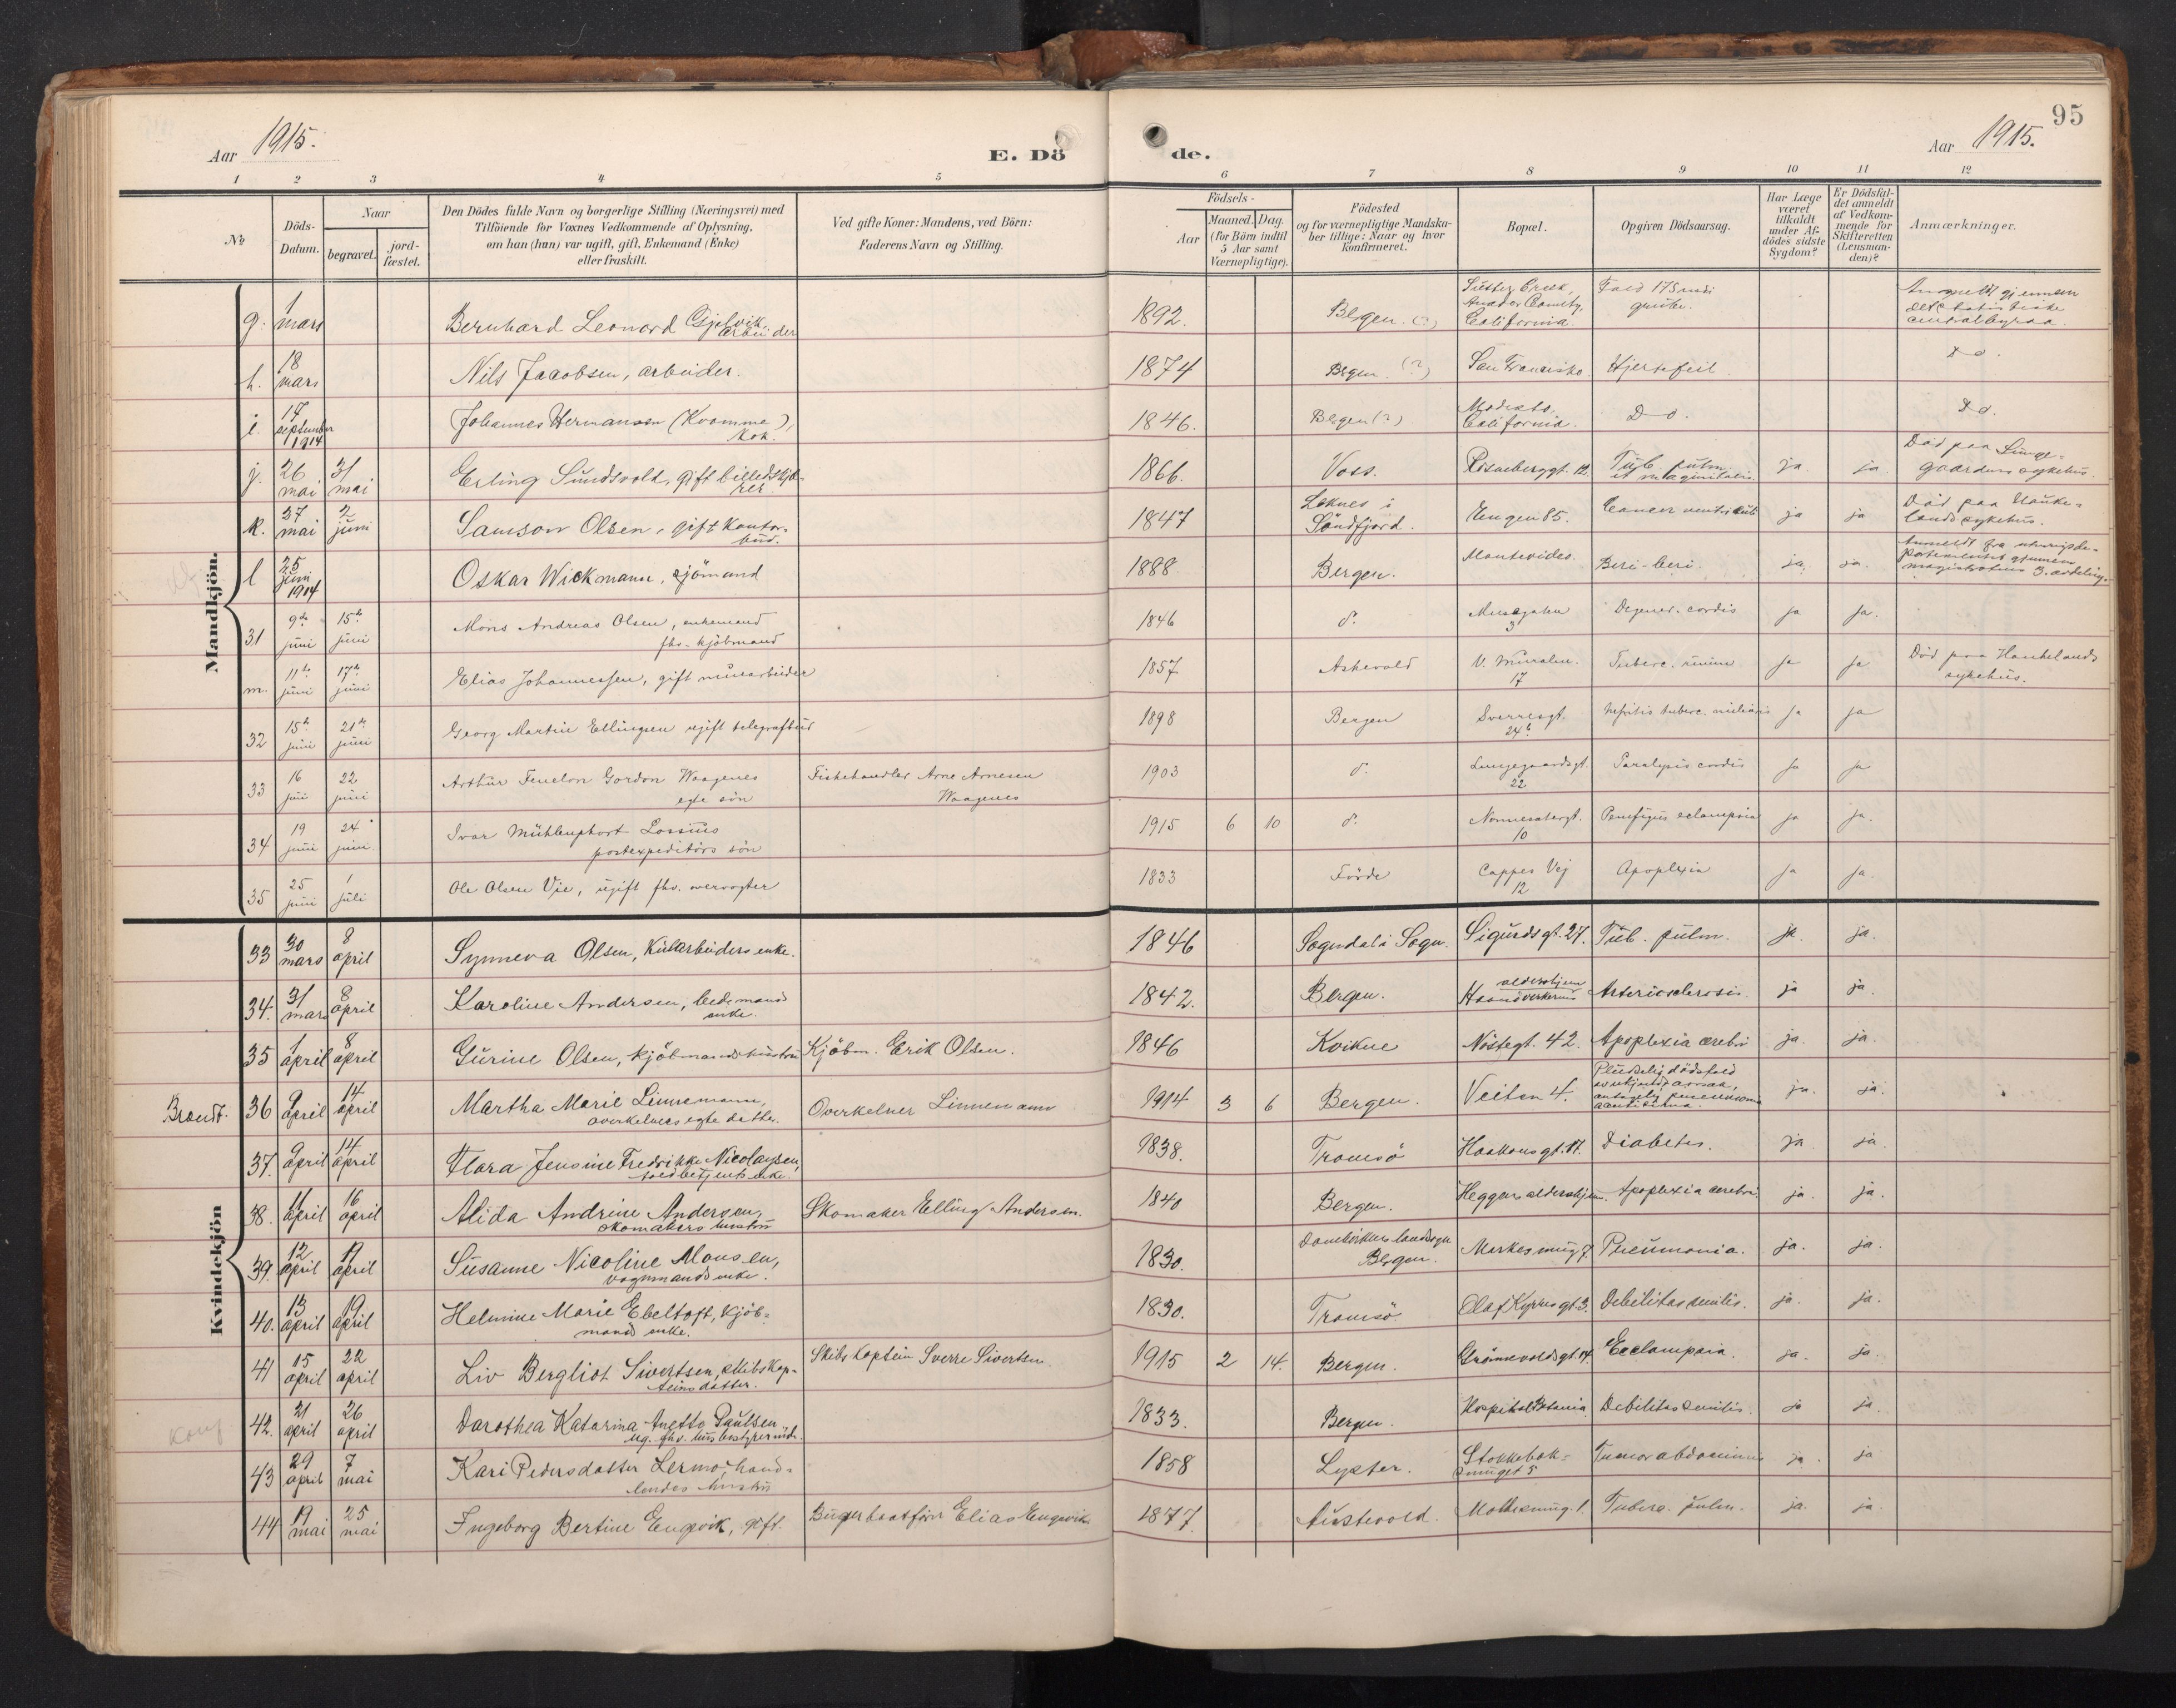 95
Aar 1915.
E. Döde.
Aar 1915.
1 2 3 4 5 6 7 8 9 10 11 12
No
Döds-Datum.
Naar
begravet.
jord-fæstet.
Den Dödes fulde Navn og borgerlige Stilling (Næringsvei) med
Tilföiende for Voxnes Vedkommende af Oplysning,
om han (hun) var ugift, gift, Enkemand (Enke)
eller fraskilt.
Ved gifte Koner: Mandens, ved Börn:
Faderens Navn og Stilling.
Födsels-
Aar
Maaned. Dag.
(for Börn indtil
5 Aar samt
Værnepligtige).
Födested
og for værnepligtige Mandska-
ber tillige: Naar og hvor
konfirmeret.
Bopæl.
Opgiven Dödsaarsag.
Har Læge
været
tilkaldt
under Af-
dödes sidste
Sygdom?
Er Dödsfal-
det anmeldt
af Vedkom-
mende for
Skifteretten
(Lensman-
den)?
Anmærkninger.
Mandkjön.
g. 1 mars Bernhard Leonard Gjelvik, arbeider 1892. Bergen. (?) Sutter Creek, Amador County, California. Fald i grube. Anmeldt gjennem det statistiske centralbyraa.
h. 18 mars Nils Jacobsen, arbeider. 1874 Bergen. (?) San Francisko Hjertefeil Do.
i. 17 september 1914 Johannes Hermansen (Kvamme), kok. 1846. Bergen (?) Modesto. California. Do. Do.
j. 26 mai 31 mai Erling Sundsvold, gift 1866. Voss. Rosenberggt. 12. Tub. pulm. ja. ja. Död paa Lunge-
gaardens sykehus.
k. 27 mai 2 juni Samson Olsen, gift kontor-
bud. 1847 Söndfjord. Engen 85. Cancer ventricul ja ja Död paa Hauke-
lands sykehus.
l 25 juni 1914 Oskar Wickmann, sjömand 1888. Bergen. Montevideo. Beri-beri. ja. ja. Anmeldt fra utenrigsde-
partementet gjennem
magistratens 3. avdeling.
31 9de juni 15de juni Mons Andreas Olsen, enkemand
fhv. kjöbmand 1846 d. 3 Degener. cordis ja ja.
m. 11te juni 17de juni Elias Johannessen, gift murarbeider 1857 Askevold V. Muralm. 17 Tuberc. ja ja Död paa Haukelands
sykehus.
32 15de juni 21de juni Georg Martin Ellingsen ugift telegrafbud 1898 Bergen Sverresgt. 24b Nefritis tuberc. miliaris ja ja
33 16 juni 22 juni Arthur Fenelon Gordon Waagenes
egte sön Fiskehandler Arne Arnesen
Waagenes 1903 d. Lungegaardsgt. 22 Paralysis cordis ja ja
34 19 juni 24 juni Ivar Mühlenphort Lossius
postexpeditörs sön 1915 6 10 d. Nonnesætergt. 10 Pemfigus eclampsia ja ja.
35 25 juni 1 juli Ole Olsen Vie, ugift fhv. 1833 Förde Cappes Vej 12 Apoplexia ja ja.
Kvindekjön
33 30 mars 8 april Synneva Olsen, kularbeiders enke. 1846 Sogndal i Sogn. Sigurdsgt. 27. Tub. pulm. ja. ja.
34. 31 mars 8 april Karoline Andersen, bedemands
enke. 1842. Bergen. Haandverkernes aldershjem Arteriosclerosis. ja ja.
35 1 april 8 april Gurine Olsen, kjöbmandshustru Kjöbm. Erik Olsen. 1846 Kvikne Nöstegt. 42. Apoplexia cerebri ja. ja.
Brandt. 36 9 april 14 april Martha Marie Linnemann,
overkelners egte datter. Overkelner Linnemann 1914 3 6 Bergen. Veiten 4. Pludselig dödsfald
av ukjendt aarsak,
antagelig ja. ja.
37. 9 april 14 april Flara Jensine Fredrikke Nicolaysen,
toldbetjents enke. 1838. Tromsö Haakonsgt. 17. Diabetes. ja ja.
38. 11 april 16 april Alida Andrine Andersen,
skomakers hustru Skomaker Elling Andersen. 1840 Bergen. Heggens aldershjem. Apoplexia cerebri. ja. ja.
39. 12 april 17 april Susanne Nicoline Monsen,
vognmands enke. 1830. Domkirkens landsogn Bergen. Markesmug 7. Pneumonia. ja. ja.
40. 13 april 19 april Helmine Marie Ebeltoft, kjöb-
mands enke. 1830. Tromsö. Olaf Kyrres gt. 3. Debilitas senilis. ja. ja.
41 15 april 22 april Liv Bergliot Sivertsen, skibskap-
teins datter. Skibskaptein Sverre Sivertsen. 1915 2 14. Bergen. Grönnevoldsgt. 14. Ecclampsia. ja. ja.
42. 21 april 26 april Dorothea Katarina Anette Paulsen,
ug. fhv. husbestyrerinde. 1833. Bergen. Hospitalet Betania. Debilitas senilis. ja ja.
43 29 april 7 mai Kari Pedersdatter Lermo, hand-
lendes hustru 1858 Lyster. Stokkebak-
smuget 5 Tumor abdominis ja. ja
44 19 mai 25 mai Ingeborg Bertine Engevik, gift. Elias Engevik 1877. Austevold. Mathismug. 1. Tuberc. pulm. ja. ja.